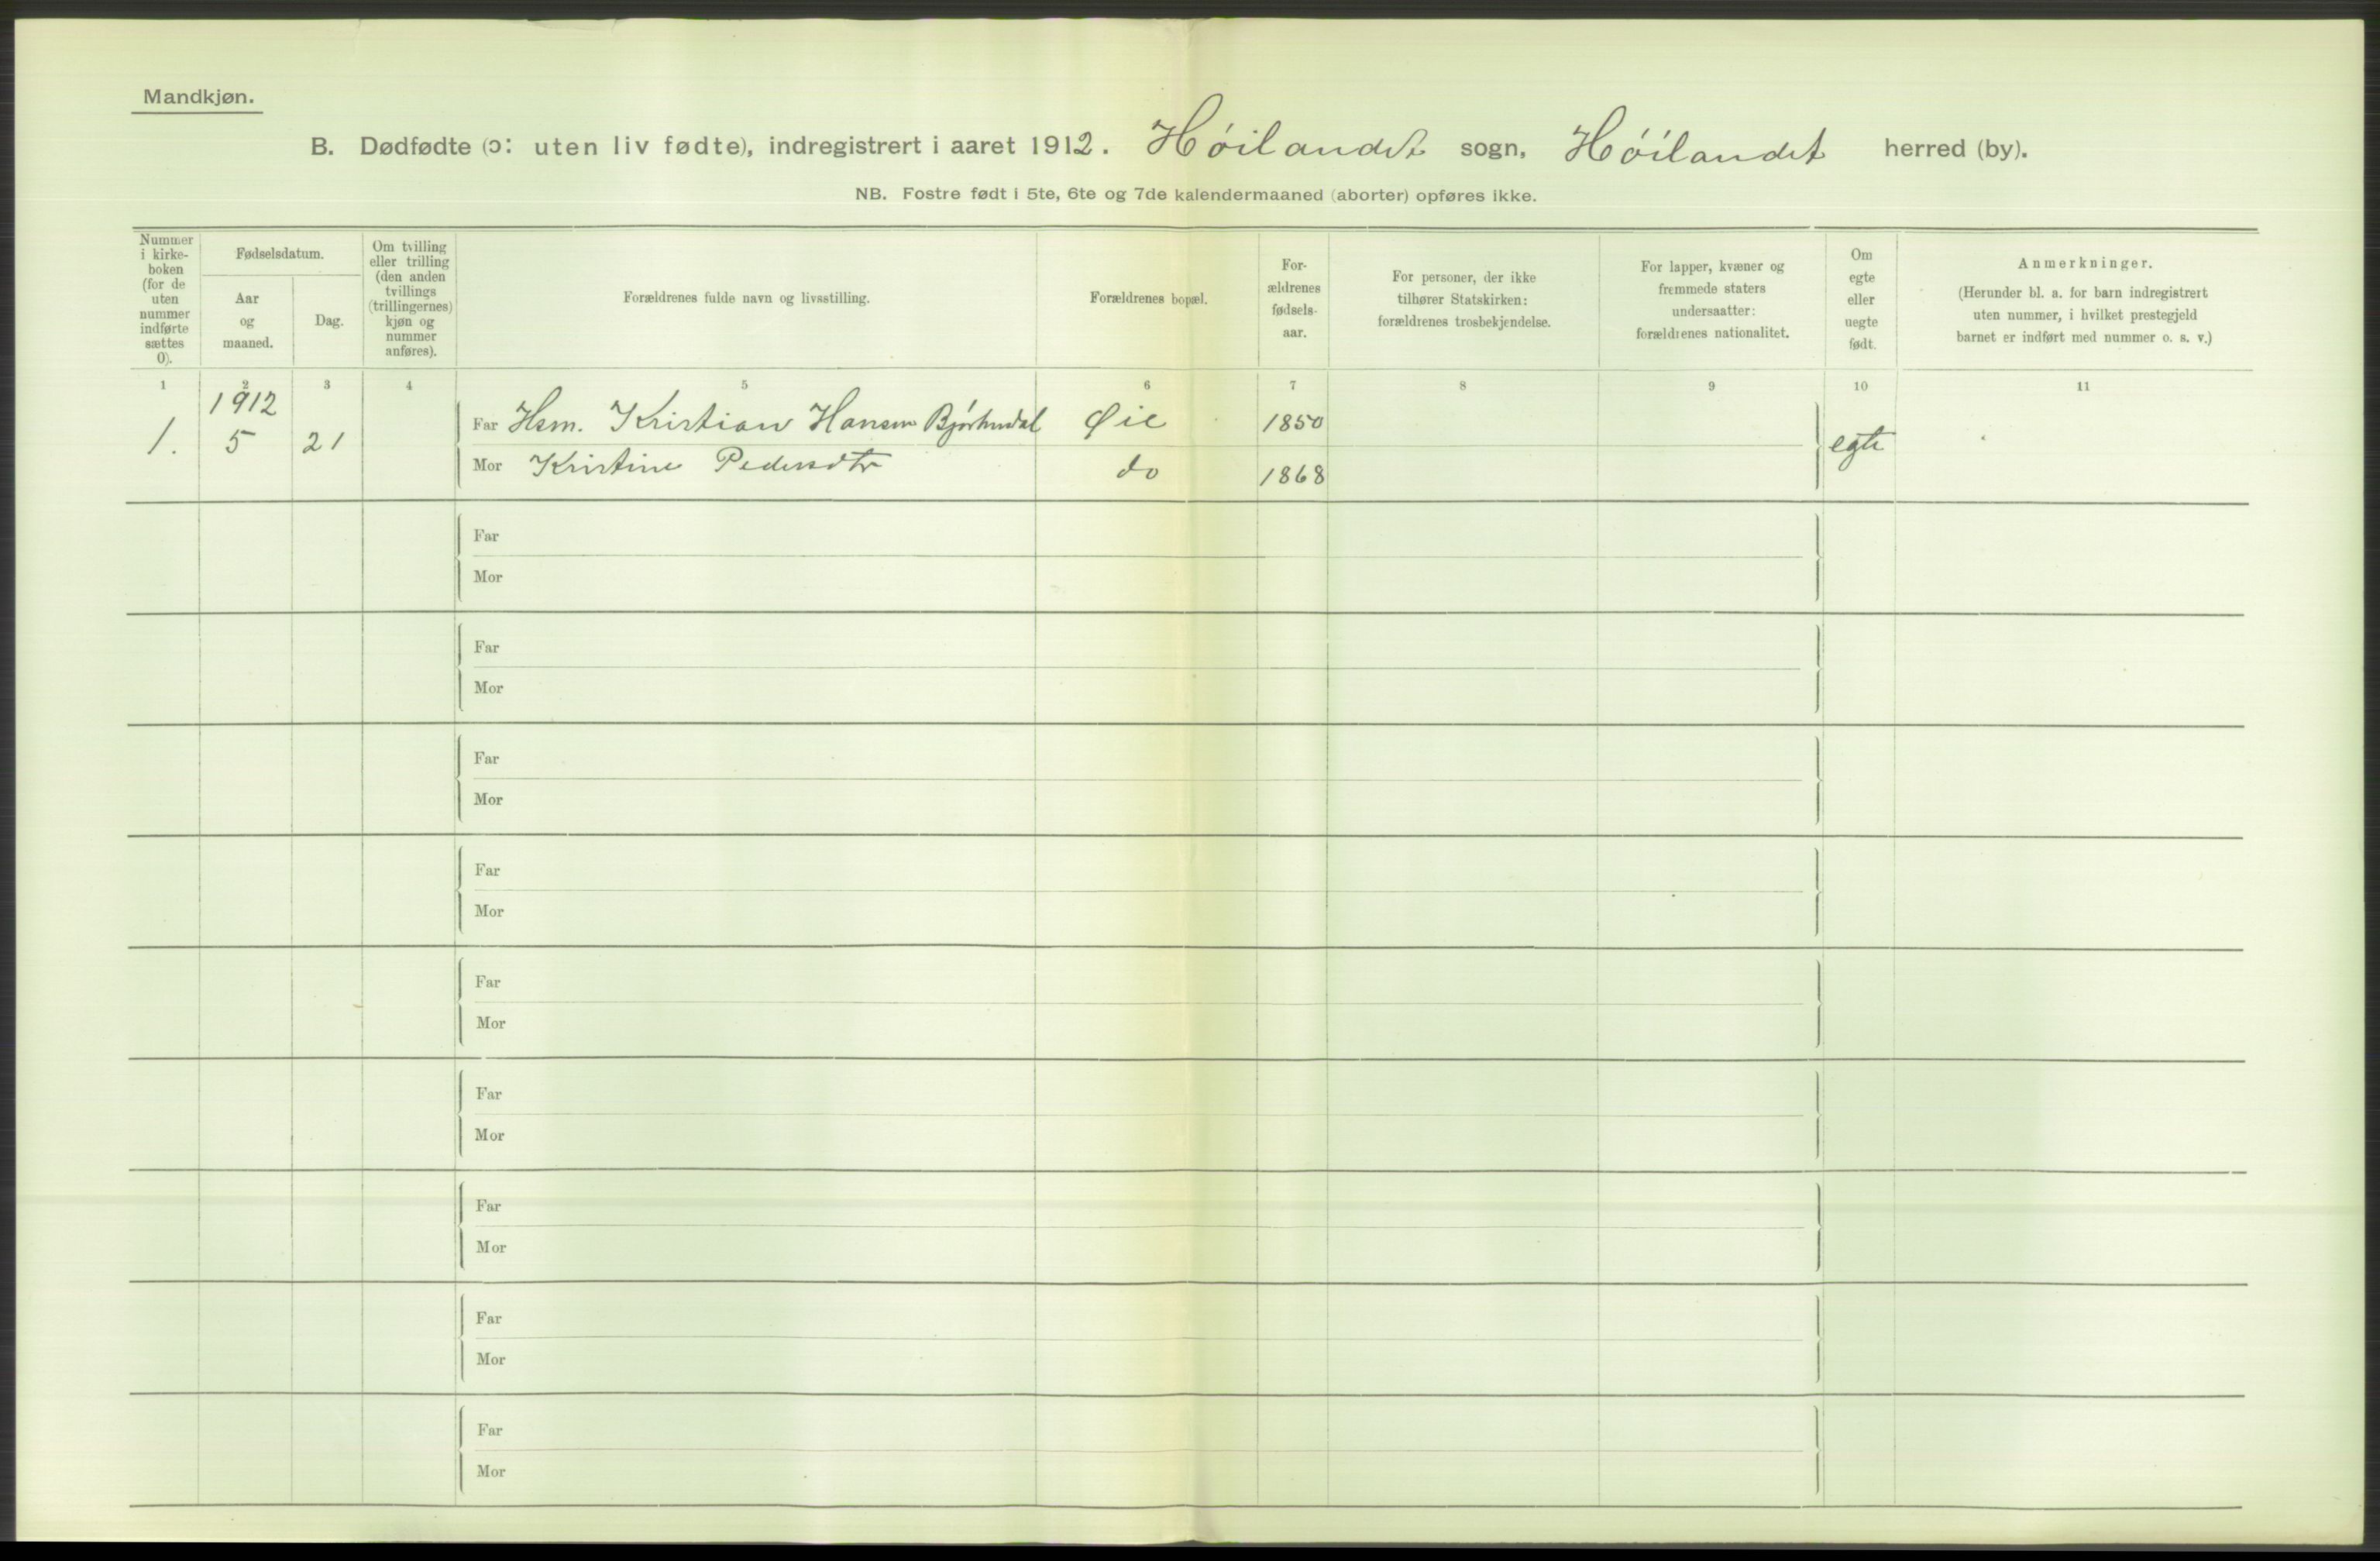 Mandkjøn.
B. Dødfødte (ɔ: uten liv fødte), indregistrert i aaret 1912. Høilandet sogn, Høilandet herred (by).
NB. Fostre født i 5te, 6te og 7de kalendermaaned (aborter) opføres ikke.
Nummer
i kirke-
boken
(for de
uten
nummer
indførte
sættes
0).
Fødselsdatum.
Aar
og
maaned.
Dag.
Om tvilling
eller trilling
(den anden
tvillings
(trillingernes)
kjøn og
nummer
anføres).
Forældrenes fulde navn og livsstilling.
Forældrenes bopæl.
For-
ældrenes
fødsels-
aar.
For personer, der ikke
tilhører Statskirken:
forældrenes trosbekjendelse.
For lapper, kvæner og
fremmede staters
undersaatter:
forældrenes nationalitet.
Om
egte
eller
uegte
født.
Anmerkninger.
(Herunder bl. a. for barn indregistrert
uten nummer, i hvilket prestegjeld
barnet er indført med nummer o. s. v.)
1 2 3 4 5 6 7 8 9 10 11
1912
1. 5 21
Far Hsm. Kristian Hansen Øie 1850
Mor Kristine Pedersdtr do 1868
egte
Far
Mor
Far
Mor
Far
Mor
Far
Mor
Far
Mor
Far
Mor
Far
Mor
Far
Mor
Far
Mor